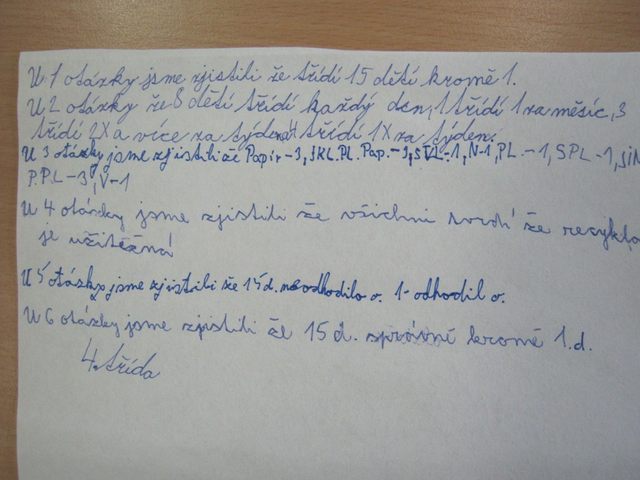 U 1 otázky jsme zjistili že třídí 15 dětí kromě 1.
U 2 otázky že 8 dětí třídí každý den, 1 třídí 1 za měsíc, 3
třídí 2X a více za týden 4 třídí 1X za týdení
U 3 otázky jsme zjistili že Papír-3, SKL.PL.Pap.-3, SVL-1, N-1, PL.-1, SPL-1,
P.PL-3, V-1
U 4 otázky jsme zjistili že všichni že
je užitečná
U 5 otázky jsme zjistili že 15 d. neodhodilo o. 1-odhodil o.
U 6 otázky jsme zjistili že 15 d. správně kromě 1.d.
4. třída